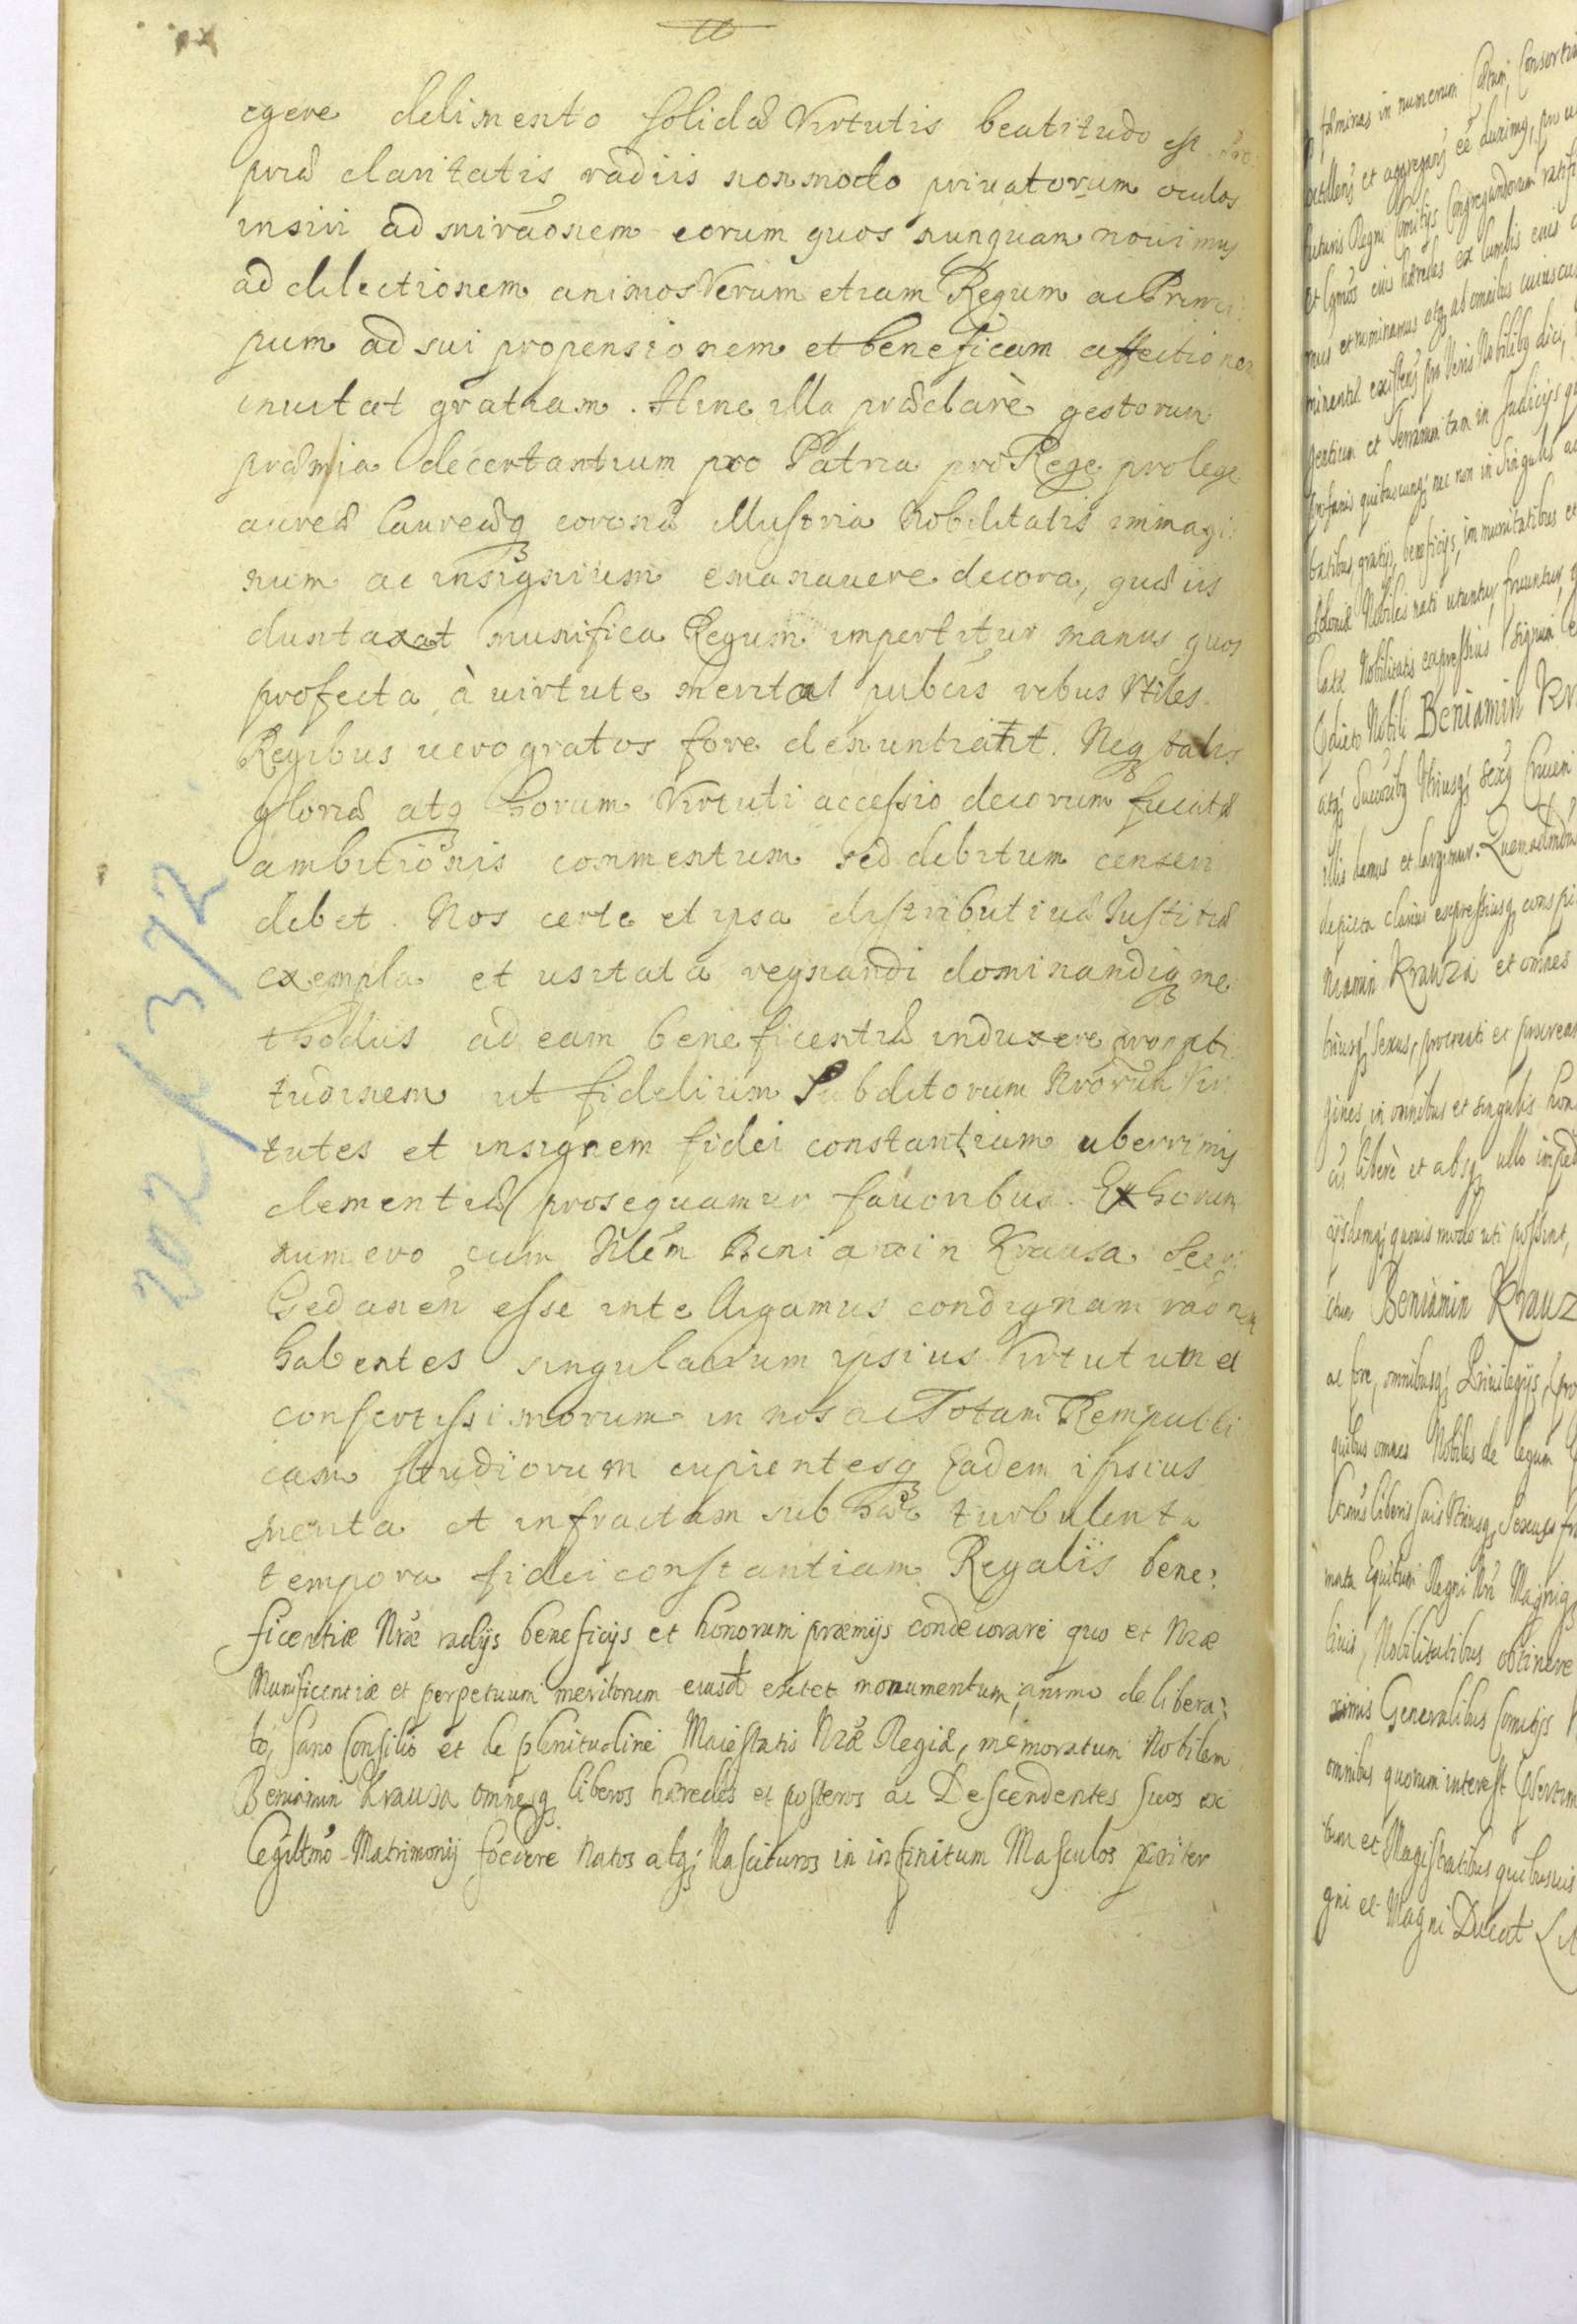 egere delimento solidæ Virtutis beatitudo est. Pro
priæ claritatis radiis non modo priuatorum oculos
insui admirãonem eorum quos nunquam nouimus
ad dilectionem animos Verum etiam Regum ac Princi
pum ad sui propensionem et beneficam affectionem
inuitat gratiam. Hinc illa præclarè gestorum
præmia decertantium pro Patria pro Rege pro lege
aureæ laureæq coronæ illustria Nobilitatis immagi:
num ac insignium emanauere decora, quæ iis
duntaxat munifica Regum impertitur manus quos
profecta à uirtute merita pubcis rebus Vtiles
Regibus uero gratos fore denuntiant. Neq talis
gloriæ atq horum Virtuti accessio decorum fucatæ
ambitionis commentum sed debitum censeri
debet. Nos certe et ipsa distributiuæ Iustitiæ
exempla et usitata regnandi dominandiq me
thodus ad eam beneficentiæ induxere prompti
tudinem ut fidelium Subditorum Nrorum Vir
tutes et insignem fidei constantiam uberrimis
clementiæ prosequamur fauoribus. Ex horum
numero cum Nlem Beniamin Krausa Secr:
Gedanen esse intelligamus condignam rãonem
habentes singularum ipsius Virtutum et
confertissimorum in nos ac Totam Rempubli
cam studiorum cupientesq Eadem ipsius
merita et infractam sub hæc turbulenta
tempora fidei constantiam Regalis bene:
ficentiæ Nræ radijs beneficijs et honorum præmijs condecorare quo et Nræ
Munificentiæ et perpetuum meritorum eiusd extet monumentum, animo delibera:
to, sano Consilio et de plenitudine Maiestatis Nræ Regiæ, memoratum Nobilem
Beniamin Krausa omnesq liberos hæredes et posteros ac Descendentes suos ex
legitmo Matrimonij foedere natos atq Nascituros in infinitum Masculos pariter
n 202 / 372
fæminas in numerum Cætum, Consortiu
et aggregari eē duximus, pro ut
futuris Regni Comitijs Congregandorum ratifi
et lgmos eius hæredes ex lumbis eius
mus et nominamus atq ab omnibus cuiuscun
minentiæ existens pro Veris Nobilibq dici,
gentium et Terrarum tam in Iudicijs q
profanis quibuscunq nec non in singulis ac
batibus, gratijs, beneficijs, immunitatibus et
Poloniæ Nobiles nati utuntur, fruuntur, g
latæ Nobilitatis expressius signum
Pdicto Nobili Beniamin Kr
atq Succoribq Vtriusq sexq
illis damus et largimur. Quemadmodu
depicta clarius expressiusq conspi
niamin Krauza et omnes
triusq Sexus, procreati et procrean
gines in omnibus et singulis hon
as liberè et absq ullo imped
ijsdemq quouis modo uti possint,
Beniamin Krauz
ac fore, omnibusq Priuilegijs,
quibus omnes Nobiles de legum
liberis suis Vtriusq Sexus
mata Equitum Regni Nri Magniq
Nobilitatibus obtinere
ximis Generalibus Comitijs
omnibus quorum interest
tum et Magistratibus quibusuis
gni et Magni Ducat Lit